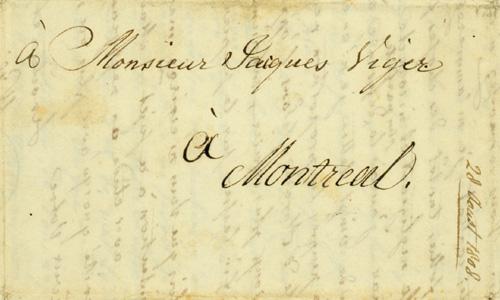 à Monsieur Jaques Viger
à
Montreal.
28 Aoust 1808.